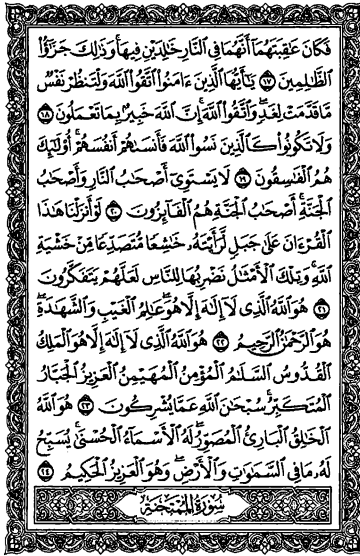 فَكَانَ عَٰقِبَتَهُمَآ أَنَّهُمَا فِى ٱلنَّارِ خَٰلِدَيْنِ فِيهَا ۚ وَذَٰلِكَ جَزَٰٓؤُا۟
ٱلظَّٰلِمِينَ ١٧ يَٰٓأَيُّهَا ٱلَّذِينَ ءَامَنُوا۟ ٱتَّقُوا۟ ٱللَّهَ وَلْتَنظُرْ نَفْسٌ
مَّا قَدَّمَتْ لِغَدٍ ۖ وَٱتَّقُوا۟ ٱللَّهَ ۚ إِنَّ ٱللَّهَ خَبِيرٌۢ بِمَا تَعْمَلُونَ ١٨
وَلَا تَكُونُوا۟ كَٱلَّذِينَ نَسُوا۟ ٱللَّهَ فَأَنسَىٰهُمْ أَنفُسَهُمْ ۚ أُو۟لَٰٓئِكَ
هُمُ ٱلْفَٰسِقُونَ ١٩ لَا يَسْتَوِىٓ أَصْحَٰبُ ٱلنَّارِ وَأَصْحَٰبُ
ٱلْجَنَّةِ ۚ أَصْحَٰبُ ٱلْجَنَّةِ هُمُ ٱلْفَآئِزُونَ ٢٠ لَوْ أَنزَلْنَا هَٰذَا
ٱلْقُرْءَانَ عَلَىٰ جَبَلٍ لَّرَأَيْتَهُۥ خَٰشِعًا مُّتَصَدِّعًا مِّنْ خَشْيَةِ
ٱللَّهِ ۚ وَتِلْكَ ٱلْأَمْثَٰلُ نَضْرِبُهَا لِلنَّاسِ لَعَلَّهُمْ يَتَفَكَّرُونَ
٢١ هُوَ ٱللَّهُ ٱلَّذِى لَآ إِلَٰهَ إِلَّا هُوَ ۖ عَٰلِمُ ٱلْغَيْبِ وَٱلشَّهَٰدَةِ ۖ
هُوَ ٱلرَّحْمَٰنُ ٱلرَّحِيمُ ٢٢ هُوَ ٱللَّهُ ٱلَّذِى لَآ إِلَٰهَ إِلَّا هُوَ ٱلْمَلِكُ
ٱلْقُدُّوسُ ٱلسَّلَٰمُ ٱلْمُؤْمِنُ ٱلْمُهَيْمِنُ ٱلْعَزِيزُ ٱلْجَبَّارُ
ٱلْمُتَكَبِّرُ ۚ سُبْحَٰنَ ٱللَّهِ عَمَّا يُشْرِكُونَ ٢٣ هُوَ ٱللَّهُ
ٱلْخَٰلِقُ ٱلْبَارِئُ ٱلْمُصَوِّرُ ۖ لَهُ ٱلْأَسْمَآءُ ٱلْحُسْنَىٰ ۚ يُسَبِّحُ
لَهُۥ مَا فِى ٱلسَّمَٰوَٰتِ وَٱلْأَرْضِ ۖ وَهُوَ ٱلْعَزِيزُ ٱلْحَكِيمُ ٢٤
سُورَةُ المُمْتَحِنَةِ